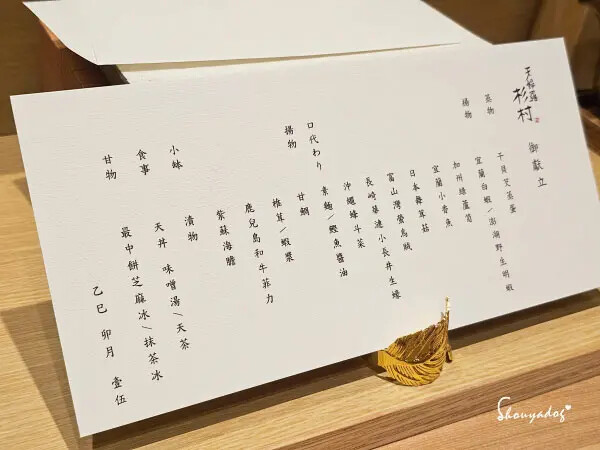 天麩羅 杉村 御獻立
蒸物 干貝芡蒸蛋
揚物 宜蘭白蝦/澎湖野生明蝦
加州綠蘆筍
宜蘭小香魚
日本舞茸菇
富山灣螢烏賊
長崎華漣小長井生蠔
沖繩蜂斗菜
口代わり 素麵/鰹魚醬油
揚物 甘鯛
椎茸/蝦漿
鹿兒島和牛菲力
紫蘇海膽
小缽 漬物
食事 天丼 味噌湯/天茶
甘物 最中餅芝麻冰/抹茶冰
乙巳 卯月 壹伍
Shouyadog